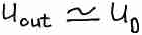 u_out ≃ u_0